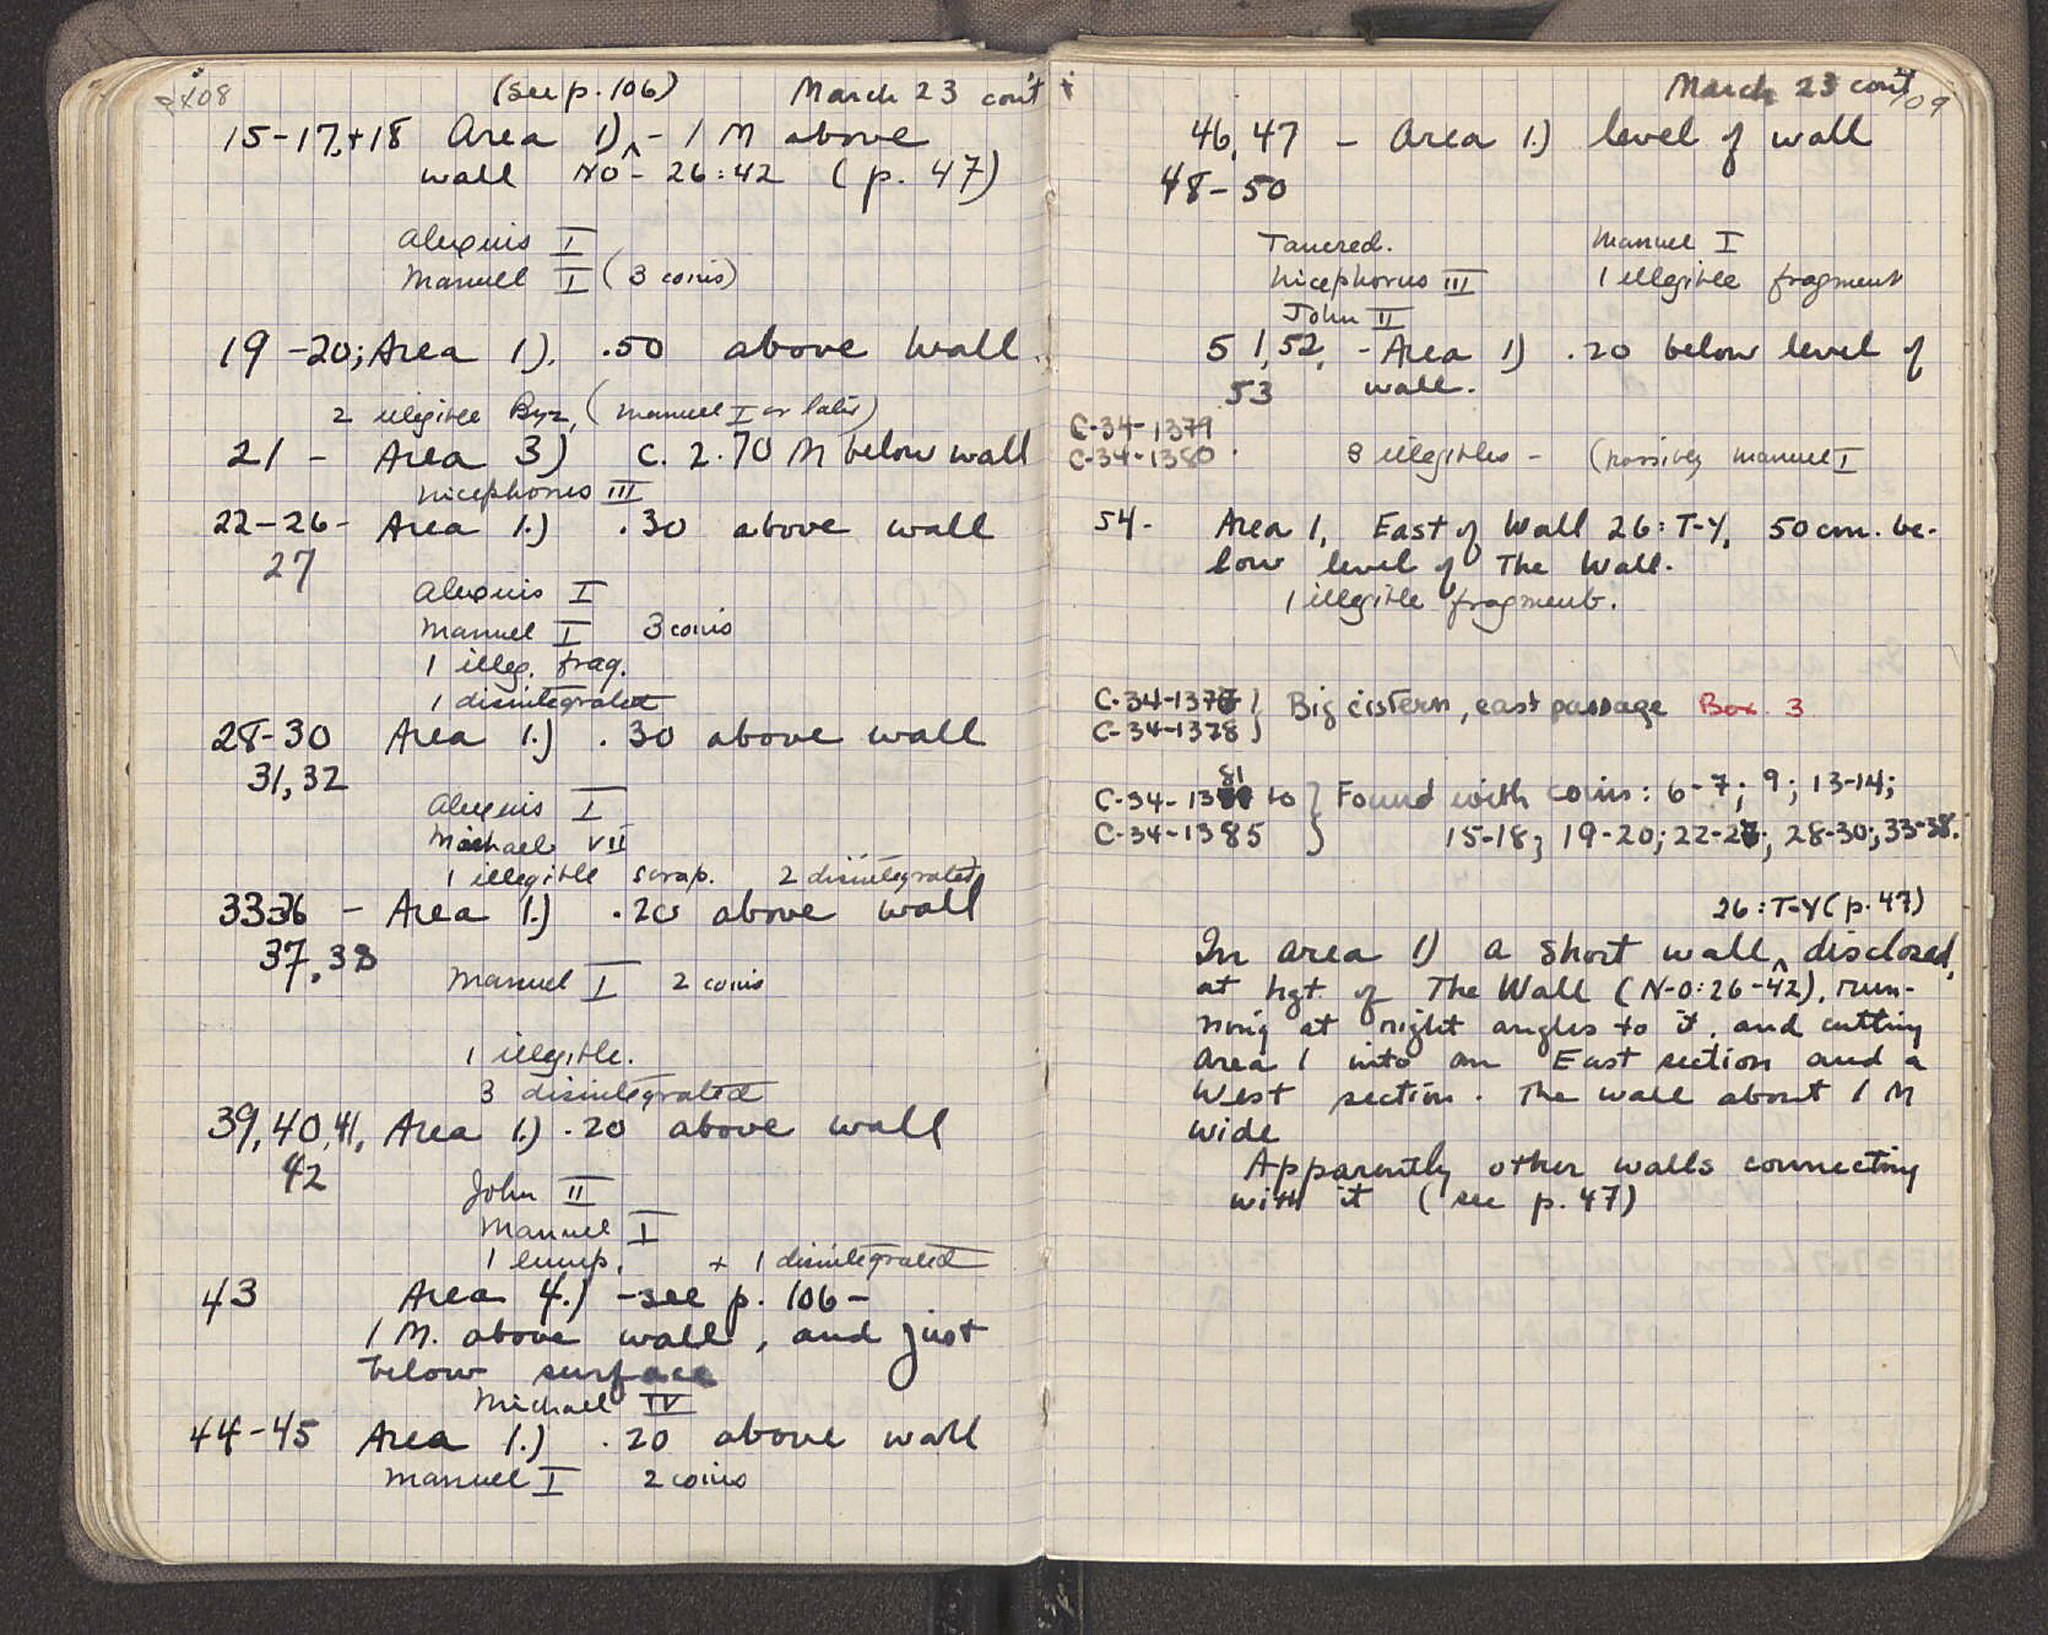 108
(see p. 106) March 23 con't
15-17,+18 Area 1) ^ - 1 M above
wall NO - 26:42 (p. 47)
Alexius I
Manuel I (3 coins)
19-20; Area 1). .50 above wall.
2 illegible Byz, (Manuel I or later)
21 - Area 3) C. 2.70 M below wall
Nicephorus III
22-26- Area 1.) .30 above wall
27
Alexius I
Manuel I 3 coins
1 illeg. frag.
1 disintegrated
28-30 Area 1.) .30 above wall
31,32
Alexius I
Michael VII
1 illegible scrap. 2 disintegrated
33-36 - Area 1.) .20 above wall
37,38
Manuel I 2 coins
1 illegible.
3 disintegrated
39,40,41, Area 1.) .20 above wall
42
John II
Manuel I
1 lump, + 1 disintegrated
43 Area 4.) -see p. 106-
1 M. above wall, and just
below surface
Michael IV
44-45 Area 1.) .20 above wall
Manuel I 2 coins
March 23 con't
109
46,47 - Area 1.) level of wall
48-50
Tancred. Manuel I
Nicephorus III 1 illegible fragment
John II
51,52, - Area 1) .20 below level of
53 wall.
C-34-1379
C-34-1380. 3 illegibles - (possibly Manuel I
54- Area 1, East of Wall 26:T-Y, 50 cm. be-
low level of The Wall.
1 illegible fragment.
C-34-1377 } Big cistern, east passage Box 3
C-34-1378 }
81
C-34-13 to } Found with coins: 6-7; 9; 13-14;
C-34-1385 } 15-18; 19-20; 22-27; 28-30; 33-38.
26:T-Y (p. 47)
In area 1) a short wall ^ disclosed,
at hgt. of The Wall (N-O:26-42), run-
ning at right angles to it, and cutting
area 1 into an East section and a
West section. The wall about 1 M
wide
Apparently other walls connecting
with it (see p. 47)